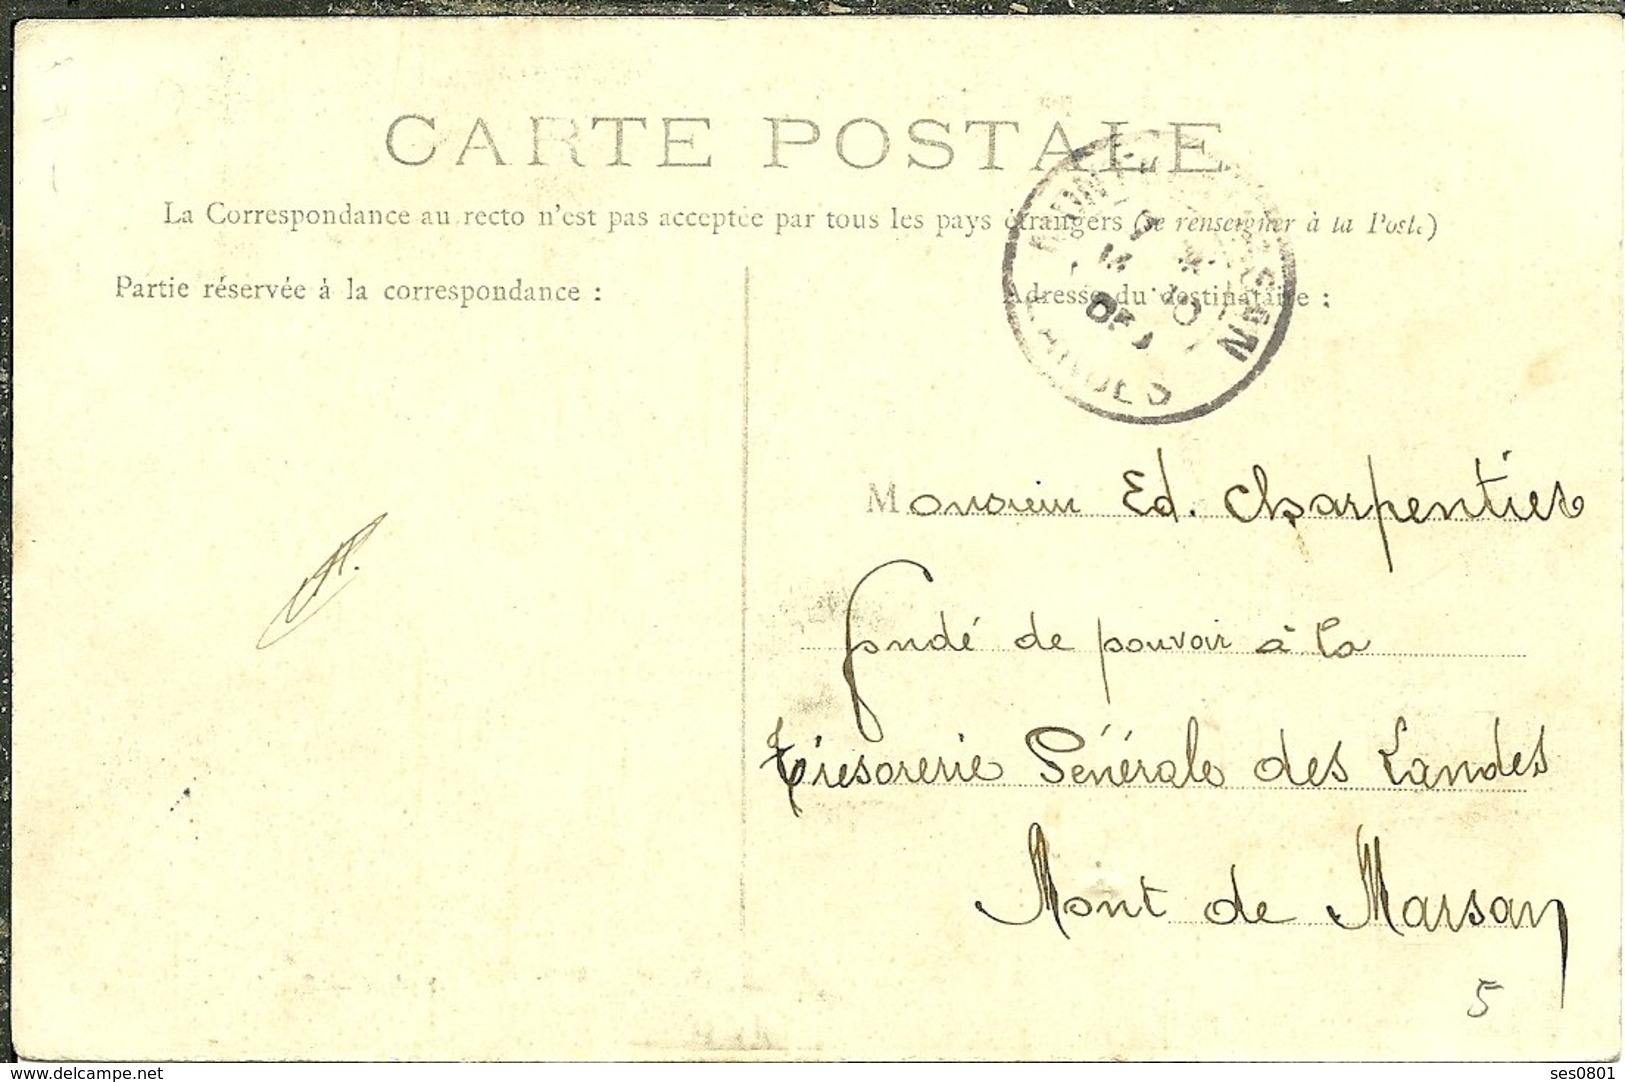 CARTE POSTALE
La Correspondance au recto n'est pas acceptée par tous les pays étrangers (se renseigner à la Poste)
Partie réservée à la correspondance :
Adresse du destinataire :
LANDES
Monsieur Ed. Charpentier
fondé de pouvoir à la
Trésorerie Générale des Landes
Mont de Marsan
5
www.delcampe.net
ses0801